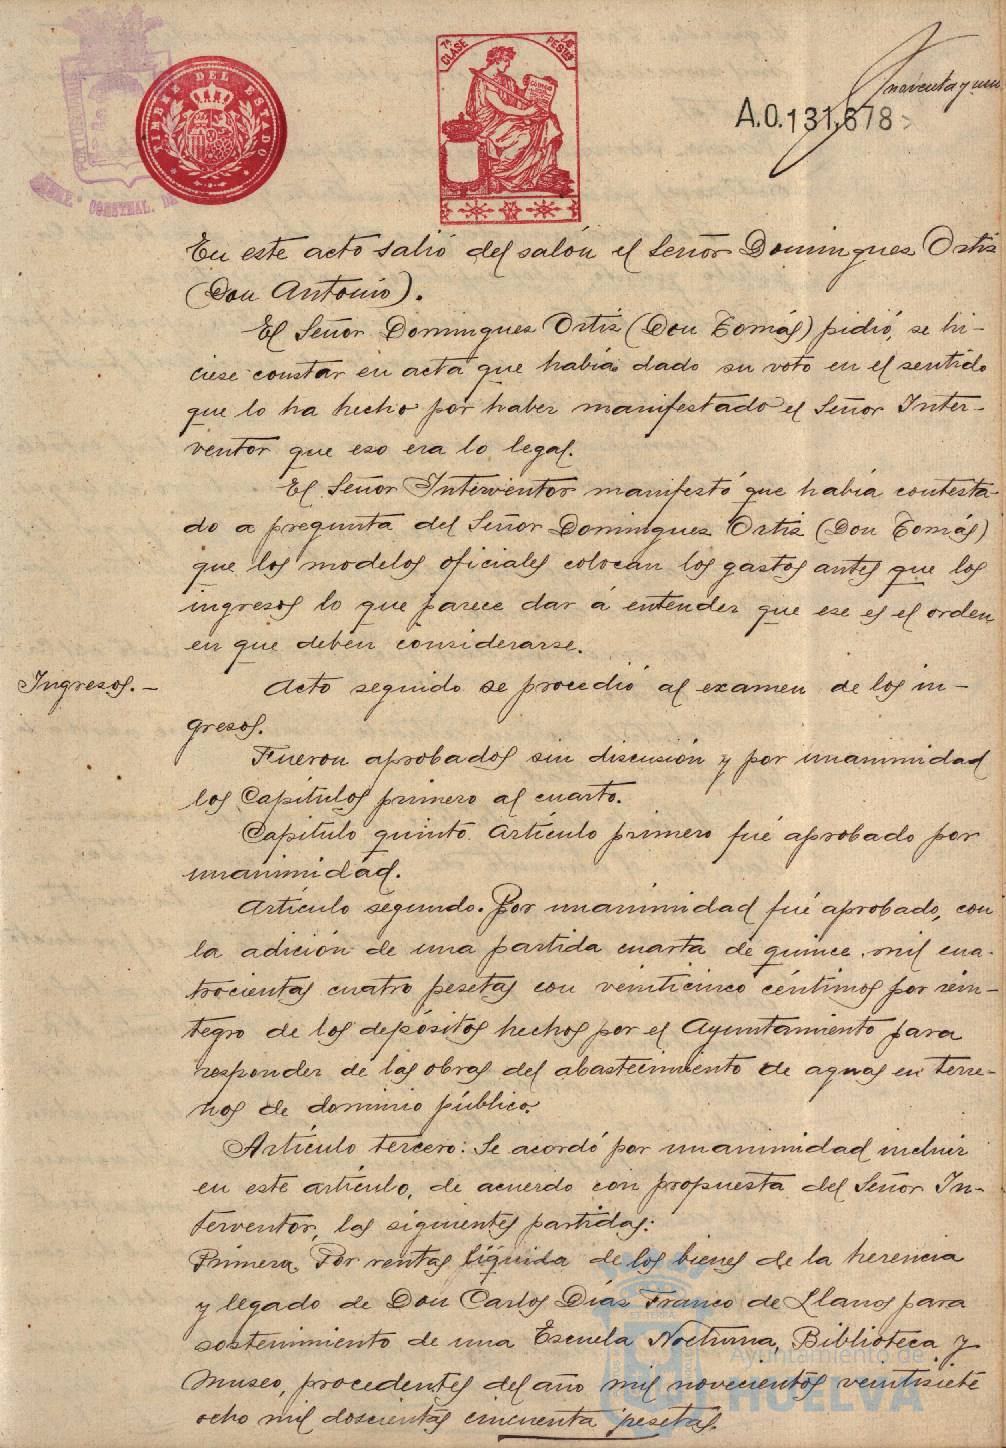 TIMBRE DEL ESTADO
7ª CLASE
PESTS
A.0.131,678
noventa y uno
En este acto salió del salón el Señor Domingues Ortiz
(Don Antonio).
El Señor Domingues Ortiz (Don Tomás) pidió, se hi-
ciese constar en acta que había dado su voto en el sentido
que lo ha hecho por haber manifestado el Señor Inter-
ventor que eso era lo legal.
El Señor Interventor manifestó que había contesta-
do a pregunta del Señor Domingues Ortiz (Don Tomás)
que los modelos oficiales colocan los gastos antes que los
ingresos lo que parece dar á entender que ese es el orden
en que deben considerarse.
Ingresos.-
Acto seguido se procedió al examen de los in-
gresos.
Fueron aprobados sin discusión y por unanimidad
los Capítulos primero al cuarto.
Capítulo quinto. Artículo primero fué aprobado por
unanimidad.
Artículo segundo. Por unánimidad fué aprobado, con
la adición de una partida cuarta de quince mil cua-
trocientas cuatro pesetas con veinticinco céntimos por rein-
tegro de los depósitos hechos por el Ayuntamiento para
responder de las obras del abastecimiento de aguas en terre-
nos de dominio público.
Artículo tercero: Se acordó por unanimidad incluir
en este artículo, de acuerdo con propuesta del Señor In-
terventor, las siguientes partidas:
Primera. Por rentas líquida de los bienes de la herencia
y legado de Don Carlos Días Franco de Llanos para
sostenimiento de una Escuela Nocturna, Biblioteca y
Museo, procedentes del año mil novecientos veintisiete
ocho mil doscientas cincuenta pesetas.
Ayuntamiento de
HUELVA